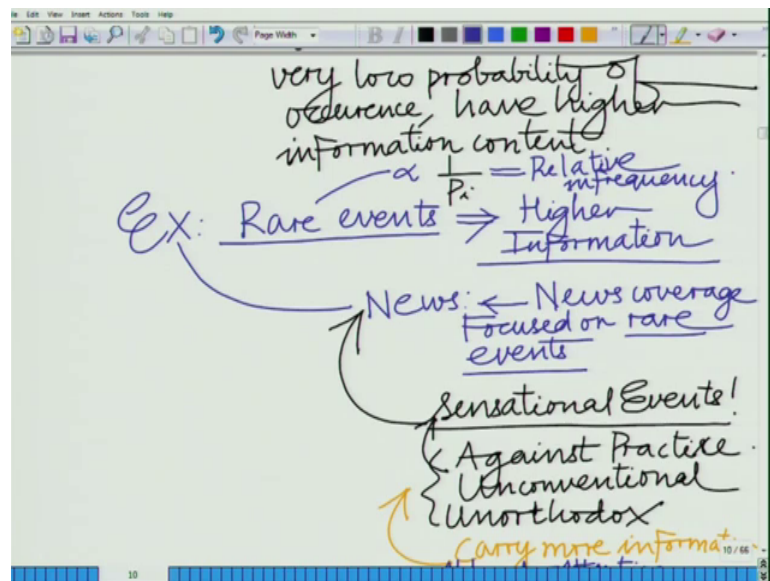 File Edit View Insert Actions Tools Help
Page Width
B I
very low probability of
occurence, have higher
information content
∝ 1/Pi = Relative
infrequency.
Ex: Rare events ⇒ Higher
Information
News: ← News coverage
Focused on rare
events
Sensational Events!
Against Practice.
Unconventional
Unorthodox
Carry more informat
10 / 66
10